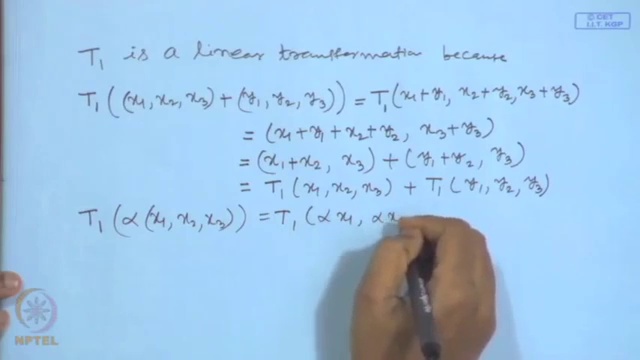 © CET
I.I.T. KGP
T₁ is a linear transformation because
T₁((x₁, x₂, x₃) + (y₁, y₂, y₃)) = T₁(x₁+y₁, x₂+y₂, x₃+y₃)
= (x₁+y₁+x₂+y₂, x₃+y₃)
= (x₁+x₂, x₃) + (y₁+y₂, y₃)
= T₁(x₁, x₂, x₃) + T₁(y₁, y₂, y₃)
T₁(α(x₁, x₂, x₃)) = T₁(αx₁, αx
NPTEL